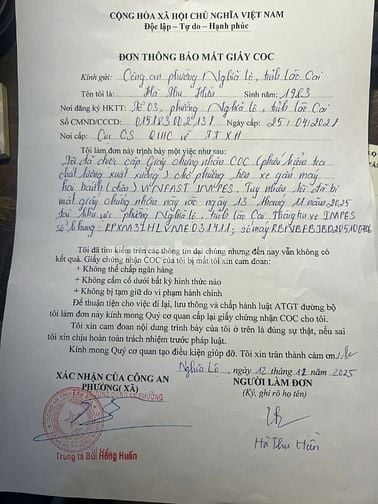 CỘNG HÒA XÃ HỘI CHỦ NGHĨA VIỆT NAM
Độc lập – Tự do – Hạnh phúc
ĐƠN THÔNG BÁO MẤT GIẤY COC
Kính gửi: Công an phường Nghĩa Lộ, tỉnh Lào Cai
Tên tôi là: Hà Thu Hiền Sinh năm: 1983
Nơi đăng ký HKTT: Tổ 03, phường Nghĩa Lộ, tỉnh Lào Cai
Số CMND/CCCD: Ngày cấp: 25/04/2021
Nơi cấp: Cục CS QLHC về TTXH
Tôi làm đơn này trình bày một việc như sau:
Tôi đã được cấp Giấy chứng nhận COC (phiếu kiểm tra
chất lượng xuất xưởng) cho phương tiện xe gắn máy
hai bánh VINFAST IMPES. Tuy nhiên tôi đã bị
mất giấy chứng nhận này vào ngày 13 tháng 11 năm 2025
tại khu vực phường Nghĩa Lộ, tỉnh Lào Cai. xe IMPES
số khung: số máy
Tôi đã tìm kiếm trên các thông tin đại chúng nhưng đến nay vẫn không có
kết quả. Giấy chứng nhận COC của tôi bị mất tôi xin cam đoan:
+ Không thế chấp ngân hàng
+ Không cầm cố dưới bất kỳ hình thức nào
+ Không bị tạm giữ do vi phạm hành chính
Để thuận tiện cho việc đi lại, lưu thông và chấp hành luật ATGT đường bộ
tôi làm đơn này kính mong Quý cơ quan cấp lại giấy chứng nhận COC cho tôi.
Tôi xin cam đoan nội dung trình bày của tôi ở trên là đúng sự thật, nếu sai
tôi xin chịu hoàn toàn trách nhiệm trước pháp luật.
Kính mong Quý cơ quan tạo điều kiện giúp đỡ. Tôi xin trân thành cảm ơn./.
Nghĩa Lộ, ngày 12 tháng 12 năm 2025
XÁC NHẬN CỦA CÔNG AN
PHƯỜNG( XÃ)
NGƯỜI LÀM ĐƠN
(Ký, ghi rõ họ tên)
Trung tá Bùi Hồng Huấn
Hà Thu Hiền